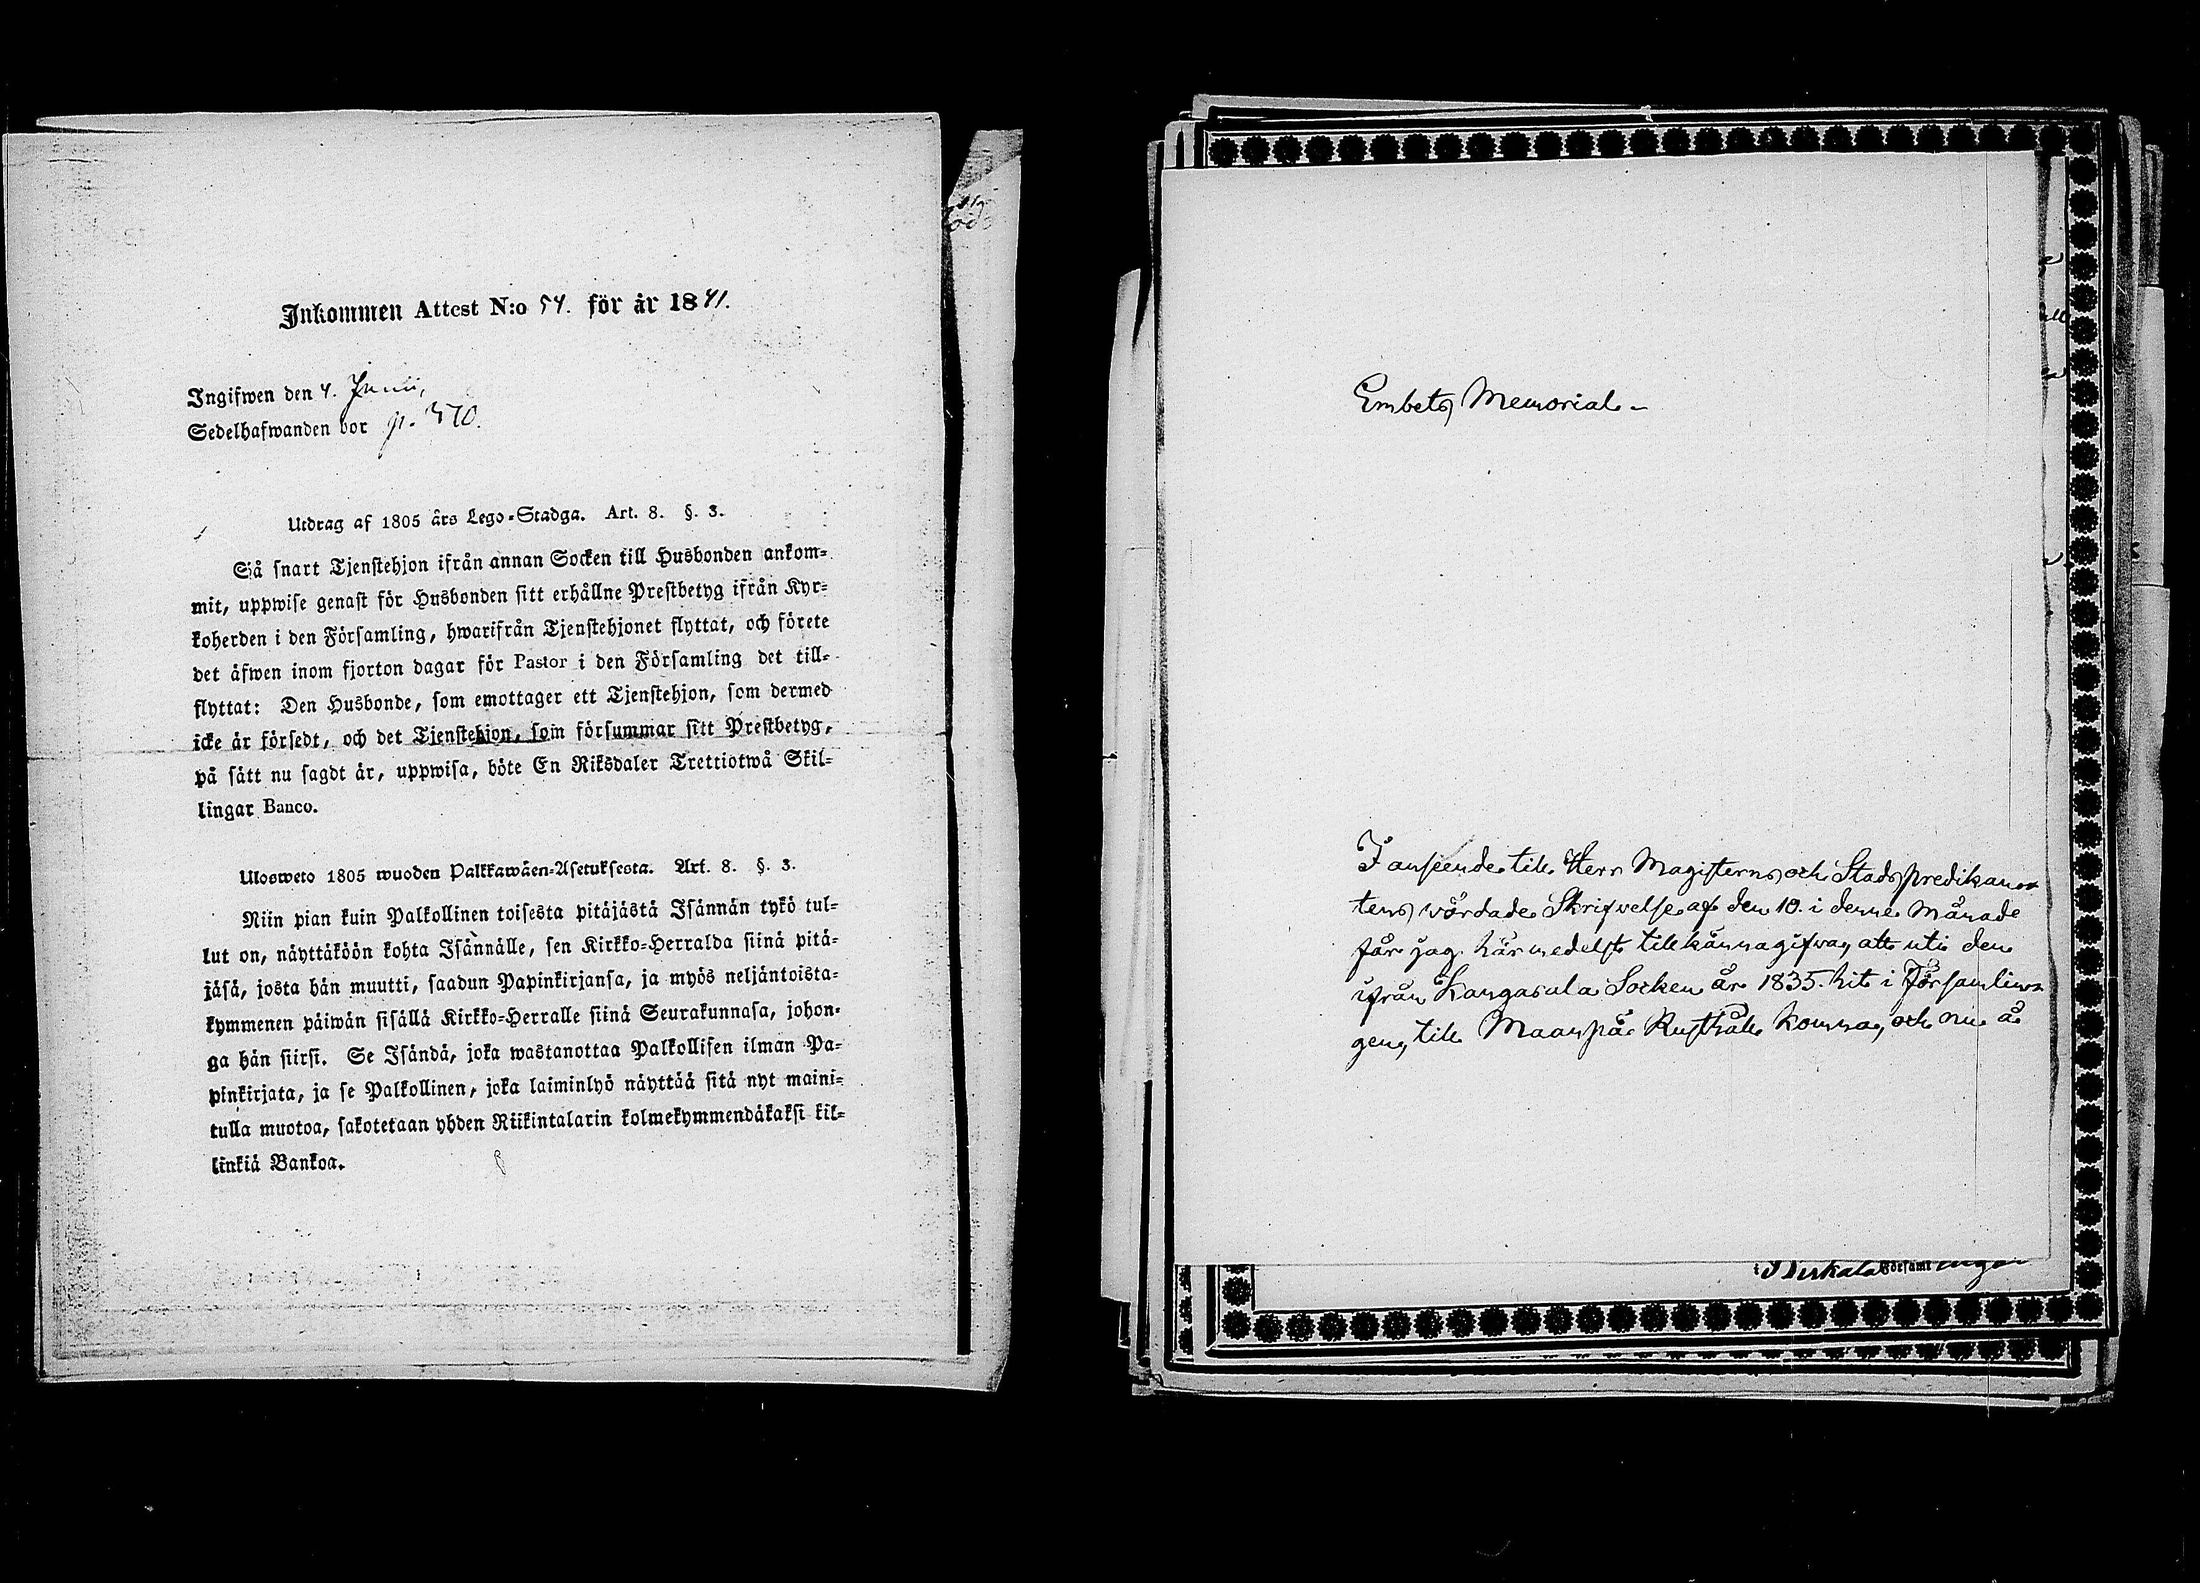 Inkommen Attest N:o 54. för år 1841.
Ingifwen den 4. Junii,
Sedelhafwanden bor p. 370.
Utdrag af 1805 års Lego-Stadga. Art. 8. §. 3.
Så snart Tjenstehjon ifrån annan Socken till Husbonden ankom-
mit, uppwise genast för Husbonden sitt erhållne Prestbetyg ifrån Kyr-
koherden i den Församling, hwarifrån Tjenstehjonet flyttat, och förete
det äfwen inom fjorton dagar för Pastor i den Församling det till-
flyttat: Den Husbonde, som emottager ett Tjenstehjon, som dermed
icke är försedt, och det Tjenstehjon, som försummar sitt Prestbetyg,
på sätt nu sagdt är, uppwisa, böte En Riksdaler Trettiotwå Skil-
lingar Banco.
Ulosweto 1805 wuoden Palkkawäen-Asetuksesta. Art. 8. §. 3.
Niin pian kuin Palkollinen toisesta pitäjästä Isännän tykö tul-
lut on, näyttäköön kohta Isännälle, sen Kirkko-Herralda siinä pitä-
jäsä, josta hän muutti, saadun Papinkirjansa, ja myös neljäntoista-
kymmenen päiwän sisällä Kirkko-Herralle siinä Seurakunnasa, johon-
ga hän siirsi. Se Isändä, joka wastanottaa Palkollisen ilman Pa-
pinkirjata, ja se Palkollinen, joka laiminlyö näyttää sitä nyt maini-
tulla muotoa, sakotetaan yhden Riikintalarin kolmekymmendäkaksi kil-
linkiä Bankoa.
Embets Memorial.
I anseende till Herr Magisterns och Stadspredikan-
tens vördade Skrifvelse af den 10. i denne Månade
får jag härmedelst tillkännagifva, att uti den
ifrån Kangasala Socken år 1835. hit i Församlin-
gen, till Maanpää Rusthåll komna, och nu å
Birkala Församlingen